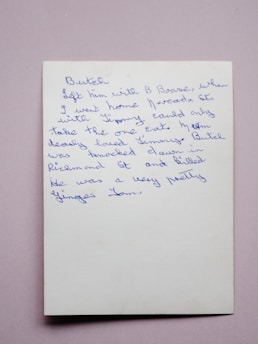 Butch
Left him with B Brase, when
I went home Nevada St
with Timmy could only
take the one cat. Mum
dearly loved Timmy. Butch
was knocked down in
Richmond St and killed
He was a very pretty
Ginger Tom.